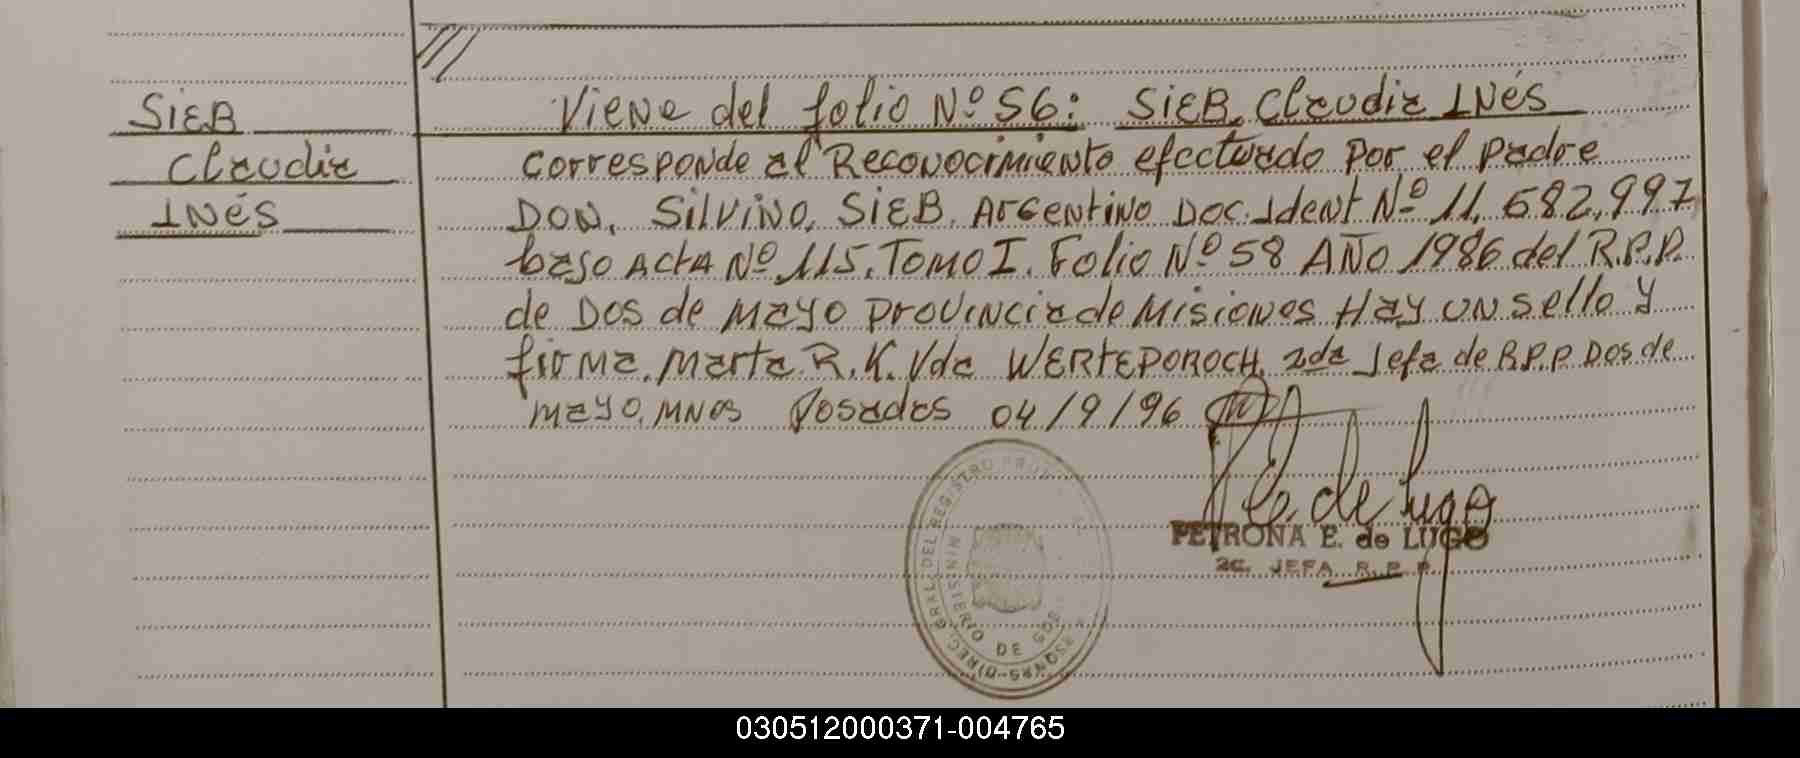 SIEB
Claudia
INés
Viene del folio Nº 56: SIEB, Claudia INés
corresponde al Reconocimiento efectuado por el padre
DON, Silvino, SIEB, Argentino Doc. Ident Nº 11,682,997
bajo Acta Nº 115, Tomo I, Folio Nº 58 AÑO 1986 del R.P.P.
de Dos de Mayo provincia de Misiones Hay un sello y
firma, Marta R. K. Vda WERTEPOROCH, 2da Jefa de R.P.P Dos de
mayo, MNOS Posadas 04/9/96
de Lugo
PETRONA E. de LUGO
2ª. JEFA R.P.P.
DIREC. GRAL. DEL REGISTRO PROV.
MINISTERIO DE GOB.
030512000371-004765